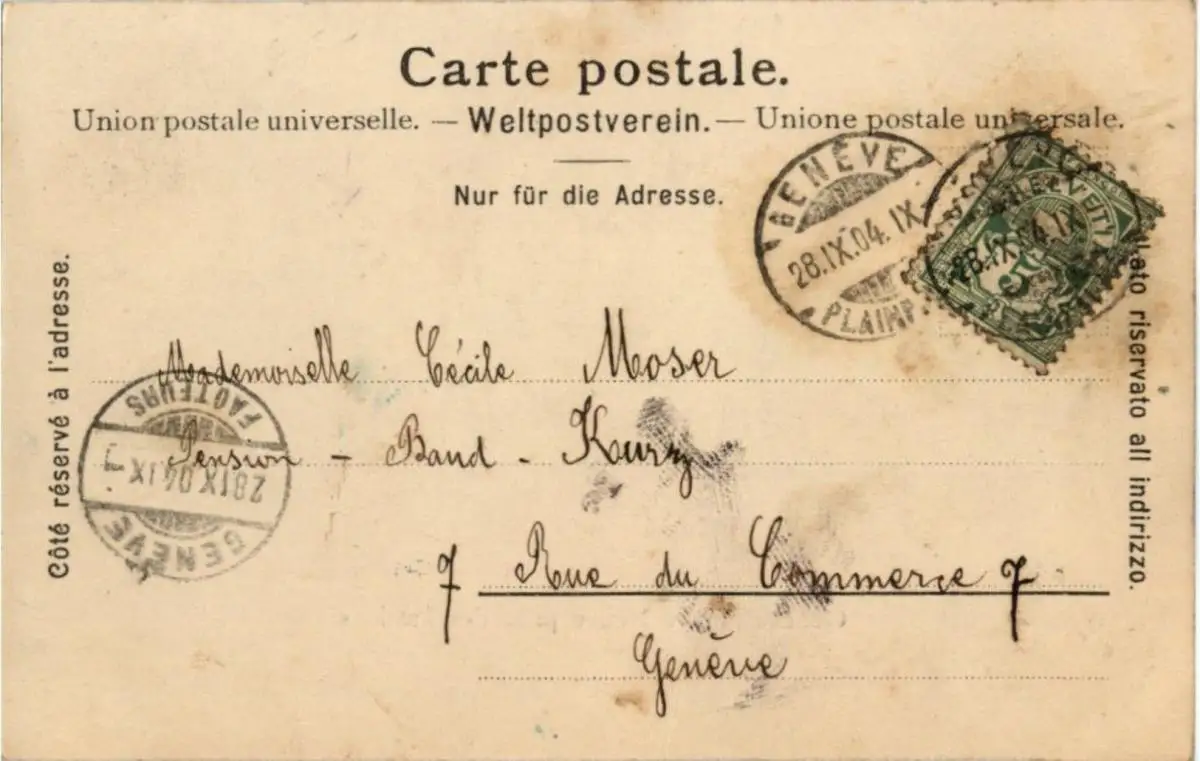 Carte postale.
Union postale universelle. — Weltpostverein. — Unione postale universale.
Nur für die Adresse.
Côté réservé à l'adresse.
Lato riservato all indirizzo.
GENÈVE
28.IX.04. IX
PLAINP.
HELVETIA
28.IX.04. IX
5
Mademoiselle Cécile Moser
Pension - Baud - Kurz
7 Rue du Commerce 7
Genève
GENÈVE
28 IX 04 IX
FACTEURS